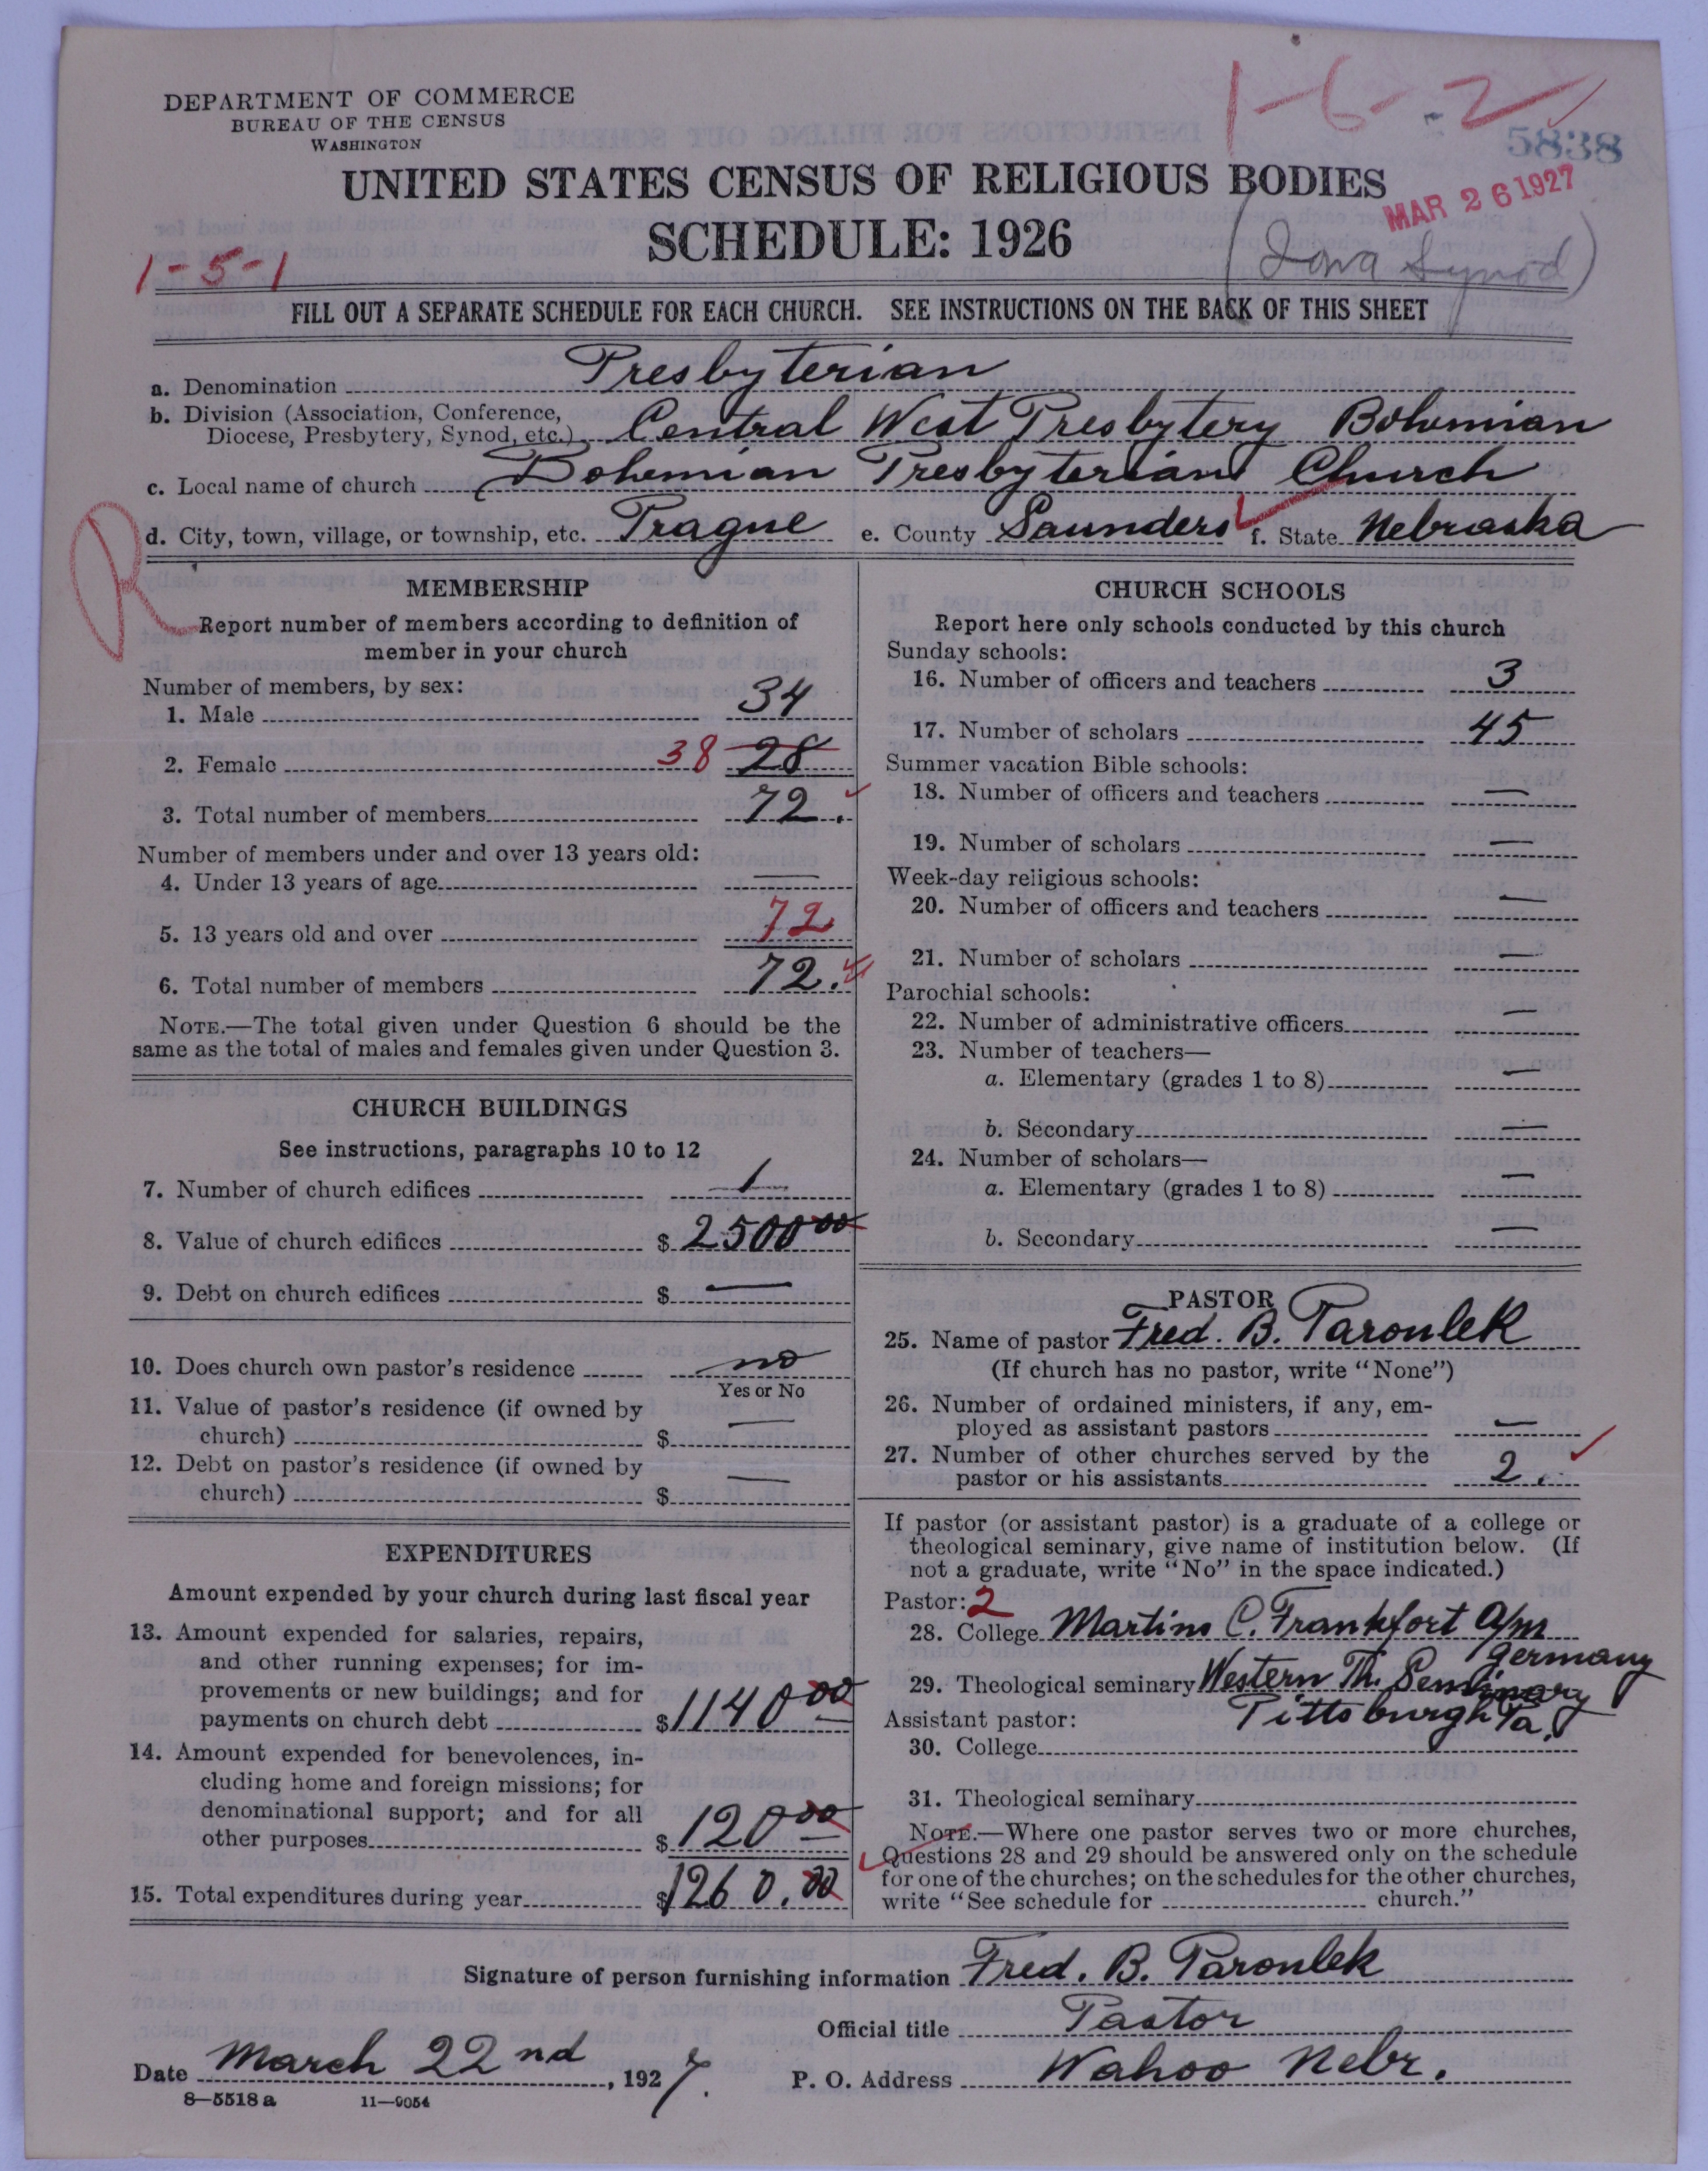 1-6-2
DEPARTMENT OF COMMERCE
BUREAU OF THE CENSUS
WASHINGTON
5838
UNITED STATES CENSUS OF RELIGIOUS BODIES
MAR 26 1927
SCHEDULE: 1926
(Iowa Synod)
1-5-1
FILL OUT A SEPARATE SCHEDULE FOR EACH CHURCH. SEE INSTRUCTIONS ON THE BACK OF THIS SHEET
a. Denomination Presbyterian
b. Division (Association, Conference,
Diocese, Presbytery, Synod, etc.) Central West Presbytery Bohemian
c. Local name of church Bohemian Presbyterian Church
R
d. City, town, village, or township, etc. Prague e. County Saunders f. State Nebraska
MEMBERSHIP
Report number of members according to definition of
member in your church
Number of members, by sex:
1. Male 34
2. Female 38 28
3. Total number of members 72.
Number of members under and over 13 years old:
4. Under 13 years of age —
5. 13 years old and over 72
6. Total number of members 72.
NOTE.—The total given under Question 6 should be the
same as the total of males and females given under Question 3.
CHURCH BUILDINGS
See instructions, paragraphs 10 to 12
7. Number of church edifices 1
8. Value of church edifices $ 2500 00
9. Debt on church edifices $ —
10. Does church own pastor's residence no
Yes or No
11. Value of pastor's residence (if owned by
church) $ —
12. Debt on pastor's residence (if owned by
church) $ —
EXPENDITURES
Amount expended by your church during last fiscal year
13. Amount expended for salaries, repairs,
and other running expenses; for im-
provements or new buildings; and for
payments on church debt $ 1140 00
14. Amount expended for benevolences, in-
cluding home and foreign missions; for
denominational support; and for all
other purposes $ 120 00
15. Total expenditures during year $ 1260.00
CHURCH SCHOOLS
Report here only schools conducted by this church
Sunday schools:
16. Number of officers and teachers 3
17. Number of scholars 45
Summer vacation Bible schools:
18. Number of officers and teachers —
19. Number of scholars —
Week-day religious schools:
20. Number of officers and teachers —
21. Number of scholars —
Parochial schools:
22. Number of administrative officers —
23. Number of teachers—
a. Elementary (grades 1 to 8) —
b. Secondary —
24. Number of scholars—
a. Elementary (grades 1 to 8) —
b. Secondary —
PASTOR
25. Name of pastor Fred. B. Paroulek
(If church has no pastor, write "None")
26. Number of ordained ministers, if any, em-
ployed as assistant pastors —
27. Number of other churches served by the
pastor or his assistants 2.
If pastor (or assistant pastor) is a graduate of a college or
theological seminary, give name of institution below. (If
not a graduate, write "No" in the space indicated.)
Pastor: 2
28. College Martins C. Frankfort a/m
Germany
29. Theological seminary Western Th. Seminary
Pittsburgh Pa.
Assistant pastor:
30. College
31. Theological seminary
NOTE.—Where one pastor serves two or more churches,
Questions 28 and 29 should be answered only on the schedule
for one of the churches; on the schedules for the other churches,
write "See schedule for church."
Signature of person furnishing information Fred. B. Paroulek
Official title Pastor
Date March 22nd, 1927. P. O. Address Wahoo Nebr.
8—5518a 11—9054